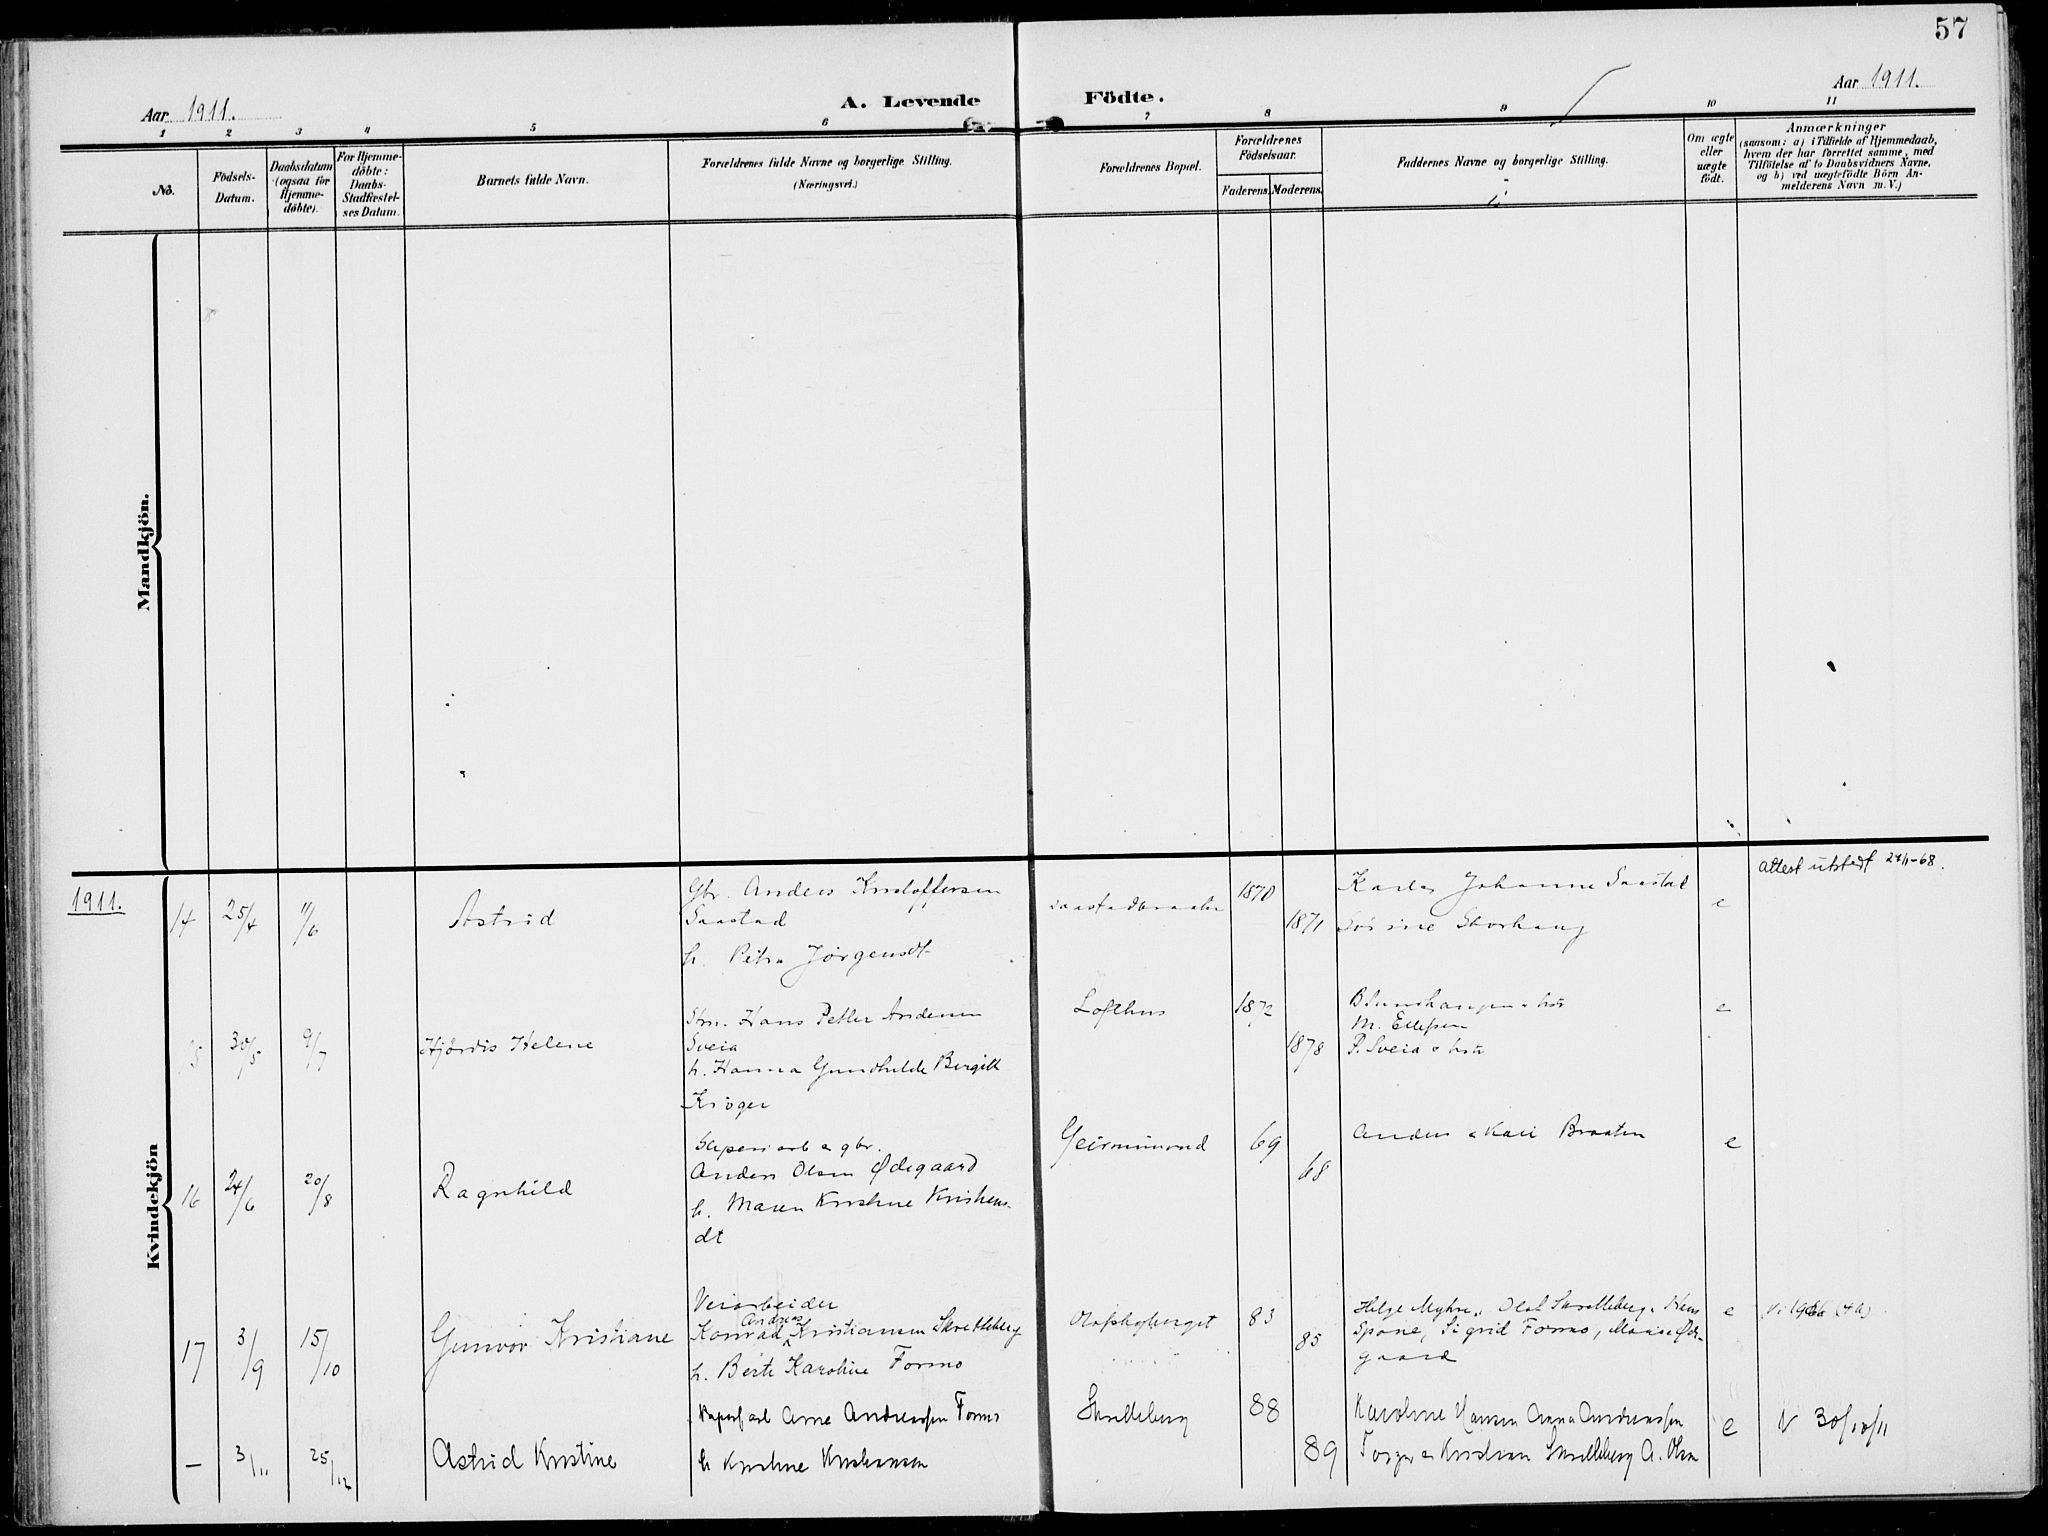 57
Aar 1911.
A. Levende Födte.
Aar 1911.
1 2 3 4 5 6 7 8 9 10 11
No.
Födsels-
Datum.
Daabsdatum
(ogsaa for
Hjemme-
döbte).
For Hjemme-
döbte:
Daabs-
Stadfæstel-
ses Datum.
Barnets fulde Navn.
Forældrenes fulde Navne og borgerlige Stilling.
(Næringsvei.)
Forældrenes Bopæl.
Forældrenes
Födselsaar.
Faderens. Moderens.
Faddernes Navne og borgerlige Stilling.
Om ægte
eller
uægte
födt.
Anmærkninger
(saasom: a) i Tilfælde af Hjemmedaab,
hvem der har forrettet samme, med
Tilföielse af to Daabsvidners Navne,
og b) ved uægtefödte Börn An-
melderens Navn m. V.)
Mandkjön.
Kvindekjön
1911.
14 25/4 11/6 Astrid
Gbr. Anders Kristoffersen
Saastad
h. Petra Jörgensdt.
Saastadbraaten 1870 1871
Karl Johanne Saastad
Sörine Storhaug
e
Attest utstedt
15 30/5 9/7 Hjördis Helene
Hans Petter Andersen
Sveia
h. Hanna Gunhilde Birgitte
Kröger
Lofthus 1872 1878
M. Ellefsen
P. Sveia
e
16 24/6 20/8 Ragnhild
Sliperiarb & gbr.
Anders Olsen Ødegaard
h. Maren Kristine Kristens-
dt
Geirmunrod 69 68
Anders & Kari Braaten
e
17 3/9 15/10 Gunvor Kristiane
Veiarbeider
Andreas
Konrad Kristiansen Skretteberg
h. Berte Karoline Formo
83 85
Helge Myhre, Olaf Skretteberg, Hans
Spone, Sigrid Formo, Maria Øde-
gaard
e
– 3/11 25/12 Astrid Kristine
Papirfarb Arne Andreassen Formo
h Kristine Kristiansen
Skretteberg 88 89
Karoline Hansen Anna Andreassen
Torger & Kristian Skretteberg A. Olsen
e
V 30/10/11